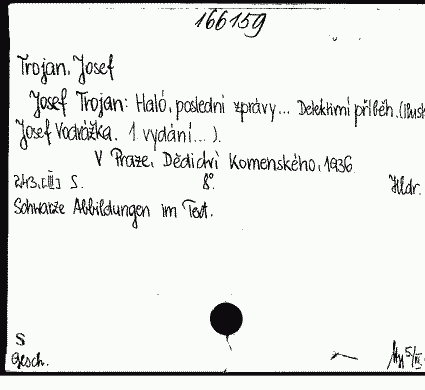 166159
Trojan, Josef
Josef Trojan: Haló, poslední zprávy... Detektivní příběh. (Ilust
Josef Vodrážka. 1 vydání... ).
V Praze, Dědictví Komenského, 1936.
243, [III] S. 8°. Hldr.
Schwarze Abbildungen im Text.
S
Gesch.